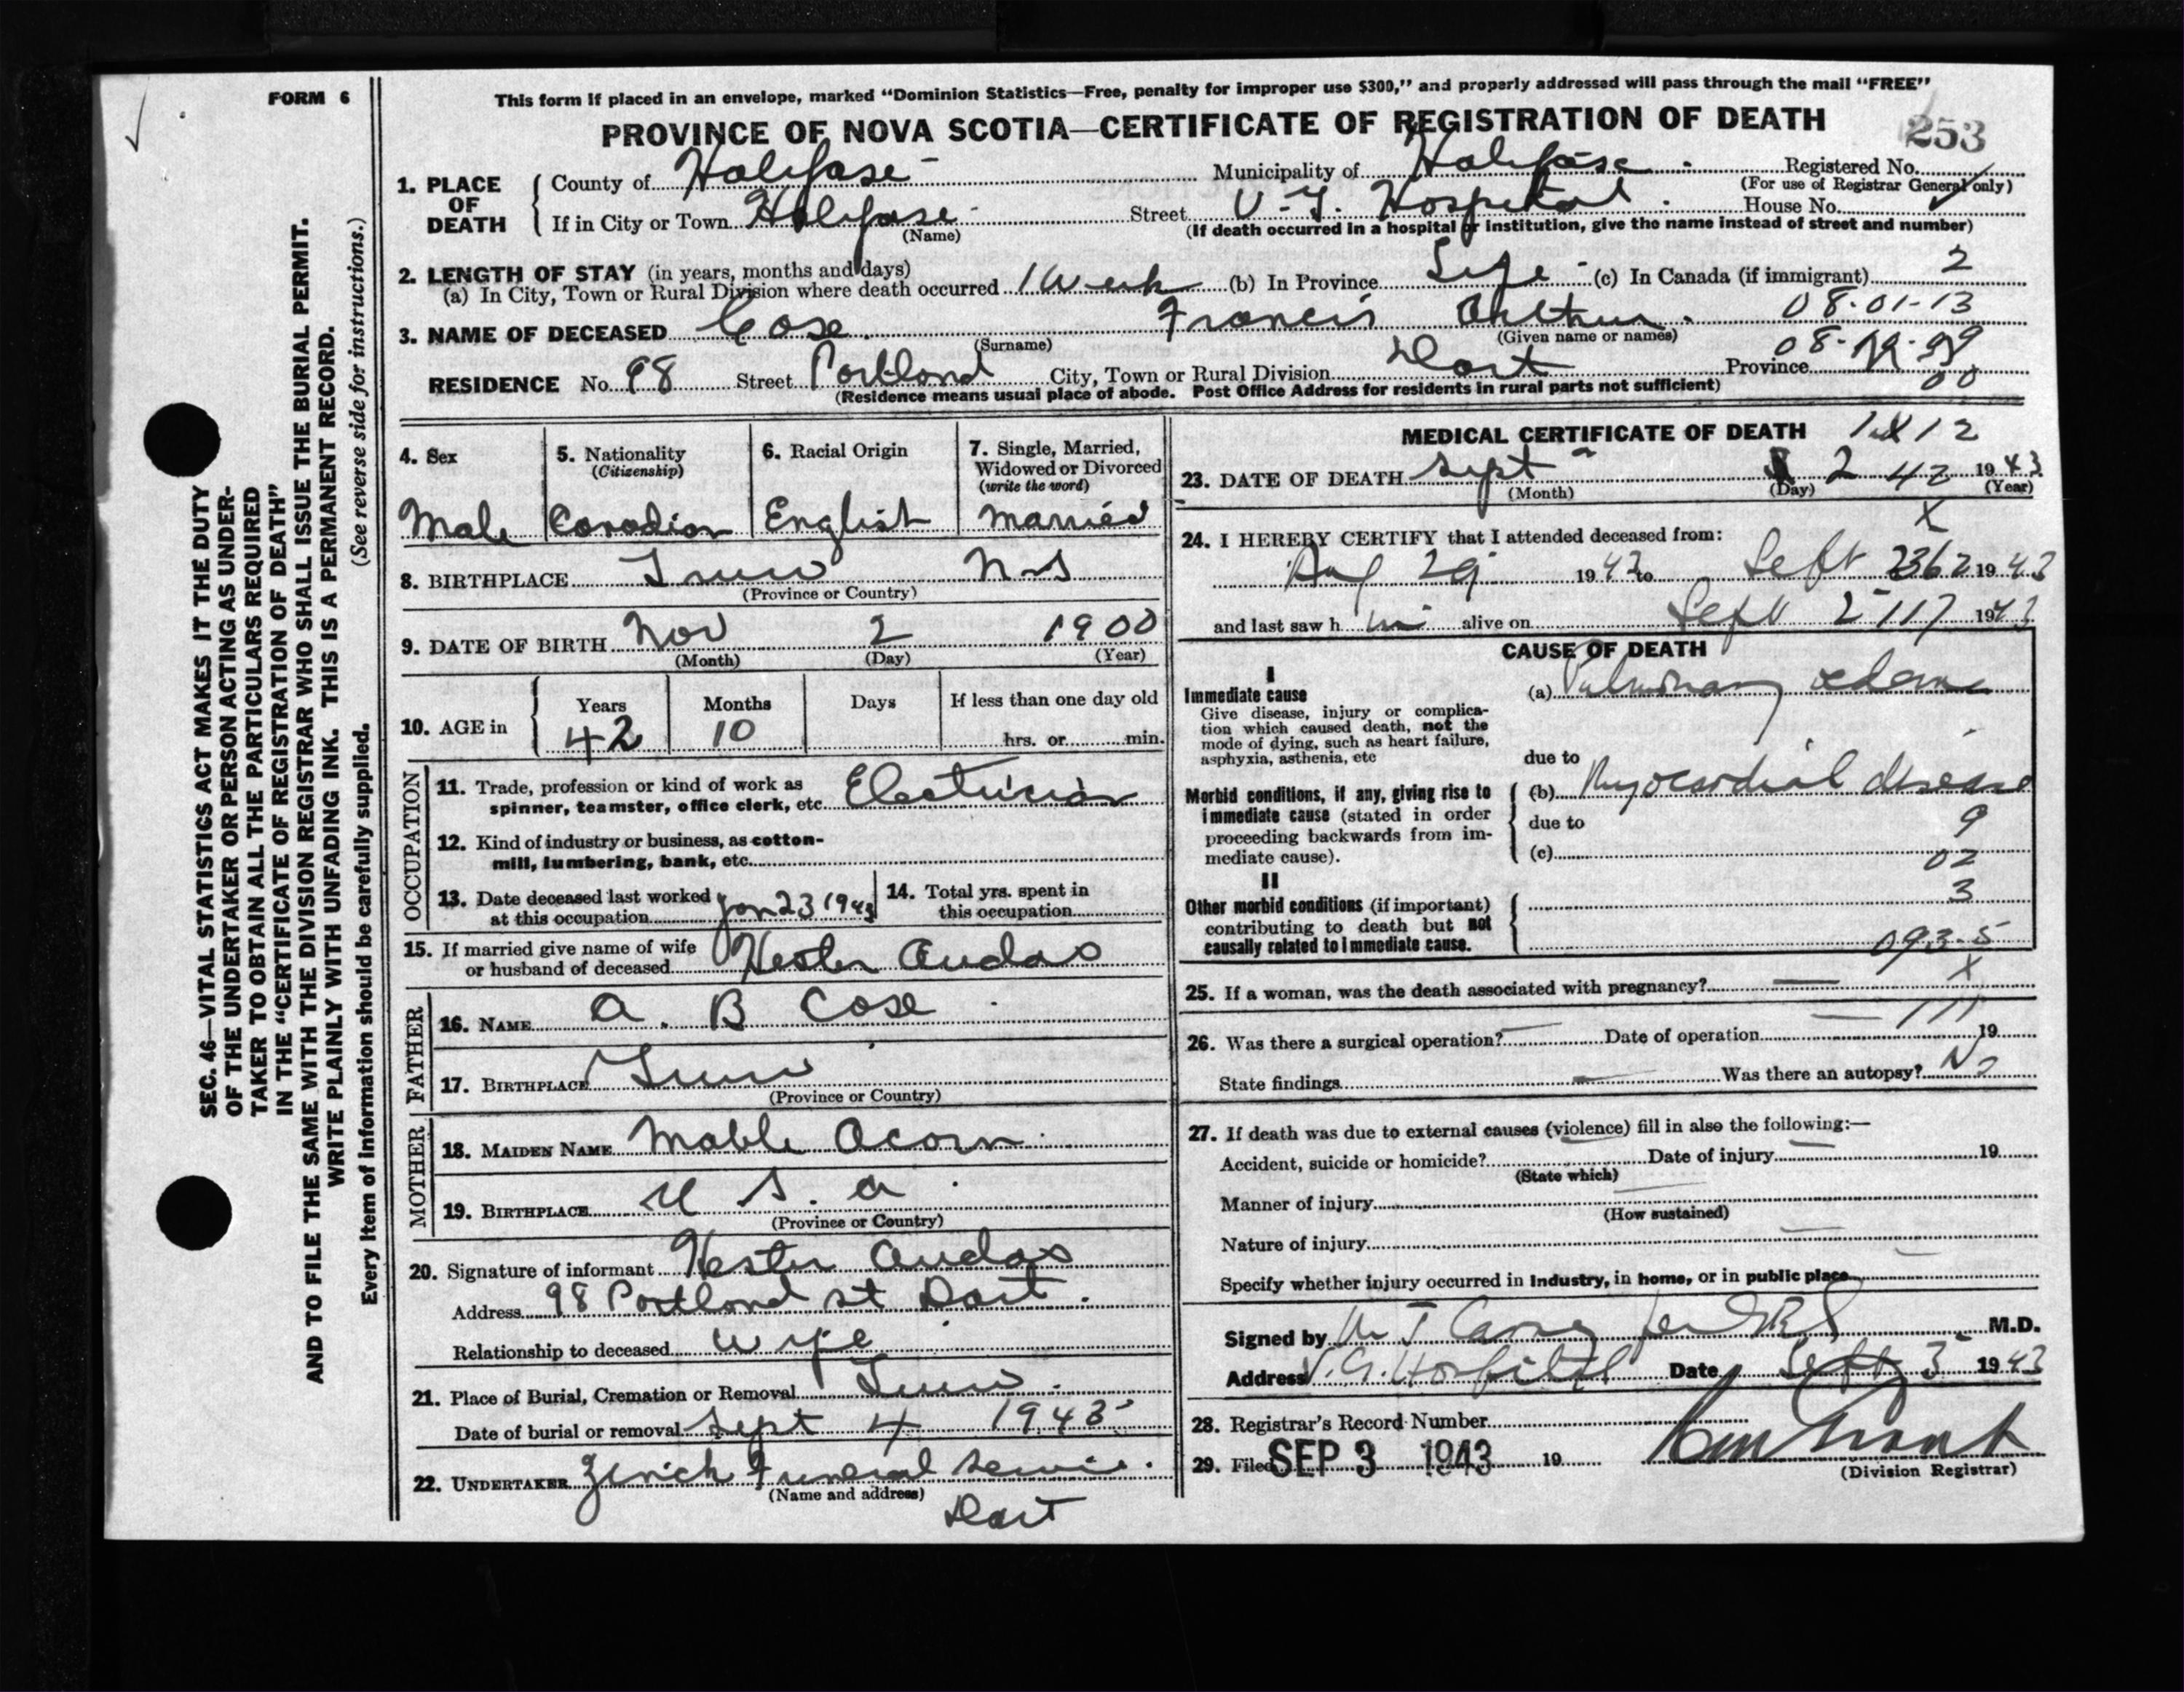 FORM 6
This form if placed in an envelope, marked “Dominion Statistics—Free, penalty for improper use $300,” and properly addressed will pass through the mail “FREE”
PROVINCE OF NOVA SCOTIA—CERTIFICATE OF REGISTRATION OF DEATH
253
1. PLACE OF DEATH
County of Halifax Municipality of Halifax Registered No.
(For use of Registrar General only)
If in City or Town Halifax Street V.G. Hospital House No.
(Name) (If death occurred in a hospital or institution, give the name instead of street and number)
2. LENGTH OF STAY (in years, months and days)
(a) In City, Town or Rural Division where death occurred 1 Week (b) In Province Life (c) In Canada (if immigrant) 2
08-01-13
3. NAME OF DECEASED Cox Francis Arthur
(Surname) (Given name or names)
RESIDENCE No. 98 Street Portland City, Town or Rural Division Dart Province
00
(Residence means usual place of abode. Post Office Address for residents in rural parts not sufficient)
4. Sex Male
5. Nationality (Citizenship) Canadian
6. Racial Origin English
7. Single, Married, Widowed or Divorced (write the word) Married
8. BIRTHPLACE Truro N-S
(Province or Country)
9. DATE OF BIRTH Nov 2 1900
(Month) (Day) (Year)
10. AGE in Years 42 Months 10 Days If less than one day old hrs. or min.
OCCUPATION
11. Trade, profession or kind of work as spinner, teamster, office clerk, etc. Electrician
12. Kind of industry or business, as cotton-mill, lumbering, bank, etc.
13. Date deceased last worked at this occupation Jan 23 1943
14. Total yrs. spent in this occupation
15. If married give name of wife or husband of deceased Hester Audas
FATHER
16. NAME A. B Cox
17. BIRTHPLACE Truro
(Province or Country)
MOTHER
18. MAIDEN NAME Mable Acorn
19. BIRTHPLACE U S. A
(Province or Country)
20. Signature of informant Hester Audas
Address 98 Portland St Dart.
Relationship to deceased Wife
21. Place of Burial, Cremation or Removal Truro.
Date of burial or removal Sept 4 1943
22. UNDERTAKER Zinck Funeral Service.
(Name and address)
Dart
MEDICAL CERTIFICATE OF DEATH
23. DATE OF DEATH Sept 2 42 1943
(Month) (Day) (Year)
X
24. I HEREBY CERTIFY that I attended deceased from:
Aug 29 1943 to Sept 2 362 1943
and last saw him alive on Sept 2 117 1943
CAUSE OF DEATH
I
Immediate cause
Give disease, injury or complication which caused death, not the mode of dying, such as heart failure, asphyxia, asthenia, etc
(a) Pulmonary edema
due to
Morbid conditions, if any, giving rise to immediate cause (stated in order proceeding backwards from immediate cause).
(b) Myocardial disease
due to 9
(c) 02
II
3
Other morbid conditions (if important) contributing to death but not causally related to immediate cause.
093-5
X
25. If a woman, was the death associated with pregnancy? —
26. Was there a surgical operation? — Date of operation — 19
State findings — Was there an autopsy? No
27. If death was due to external causes (violence) fill in also the following:—
Accident, suicide or homicide? Date of injury — 19
(State which)
Manner of injury
(How sustained)
Nature of injury
Specify whether injury occurred in industry, in home, or in public place
Signed by M.D.
Address V.G. Hospital Date Sept 3 1943
28. Registrar's Record Number
29. Filed SEP 3 1943 19
(Division Registrar)
SEC. 46—VITAL STATISTICS ACT MAKES IT THE DUTY
OF THE UNDERTAKER OR PERSON ACTING AS UNDER-
TAKER TO OBTAIN ALL THE PARTICULARS REQUIRED
IN THE “CERTIFICATE OF REGISTRATION OF DEATH”
AND TO FILE THE SAME WITH THE DIVISION REGISTRAR WHO SHALL ISSUE THE BURIAL PERMIT.
WRITE PLAINLY WITH UNFADING INK. THIS IS A PERMANENT RECORD.
(See reverse side for instructions.)
Every item of information should be carefully supplied.